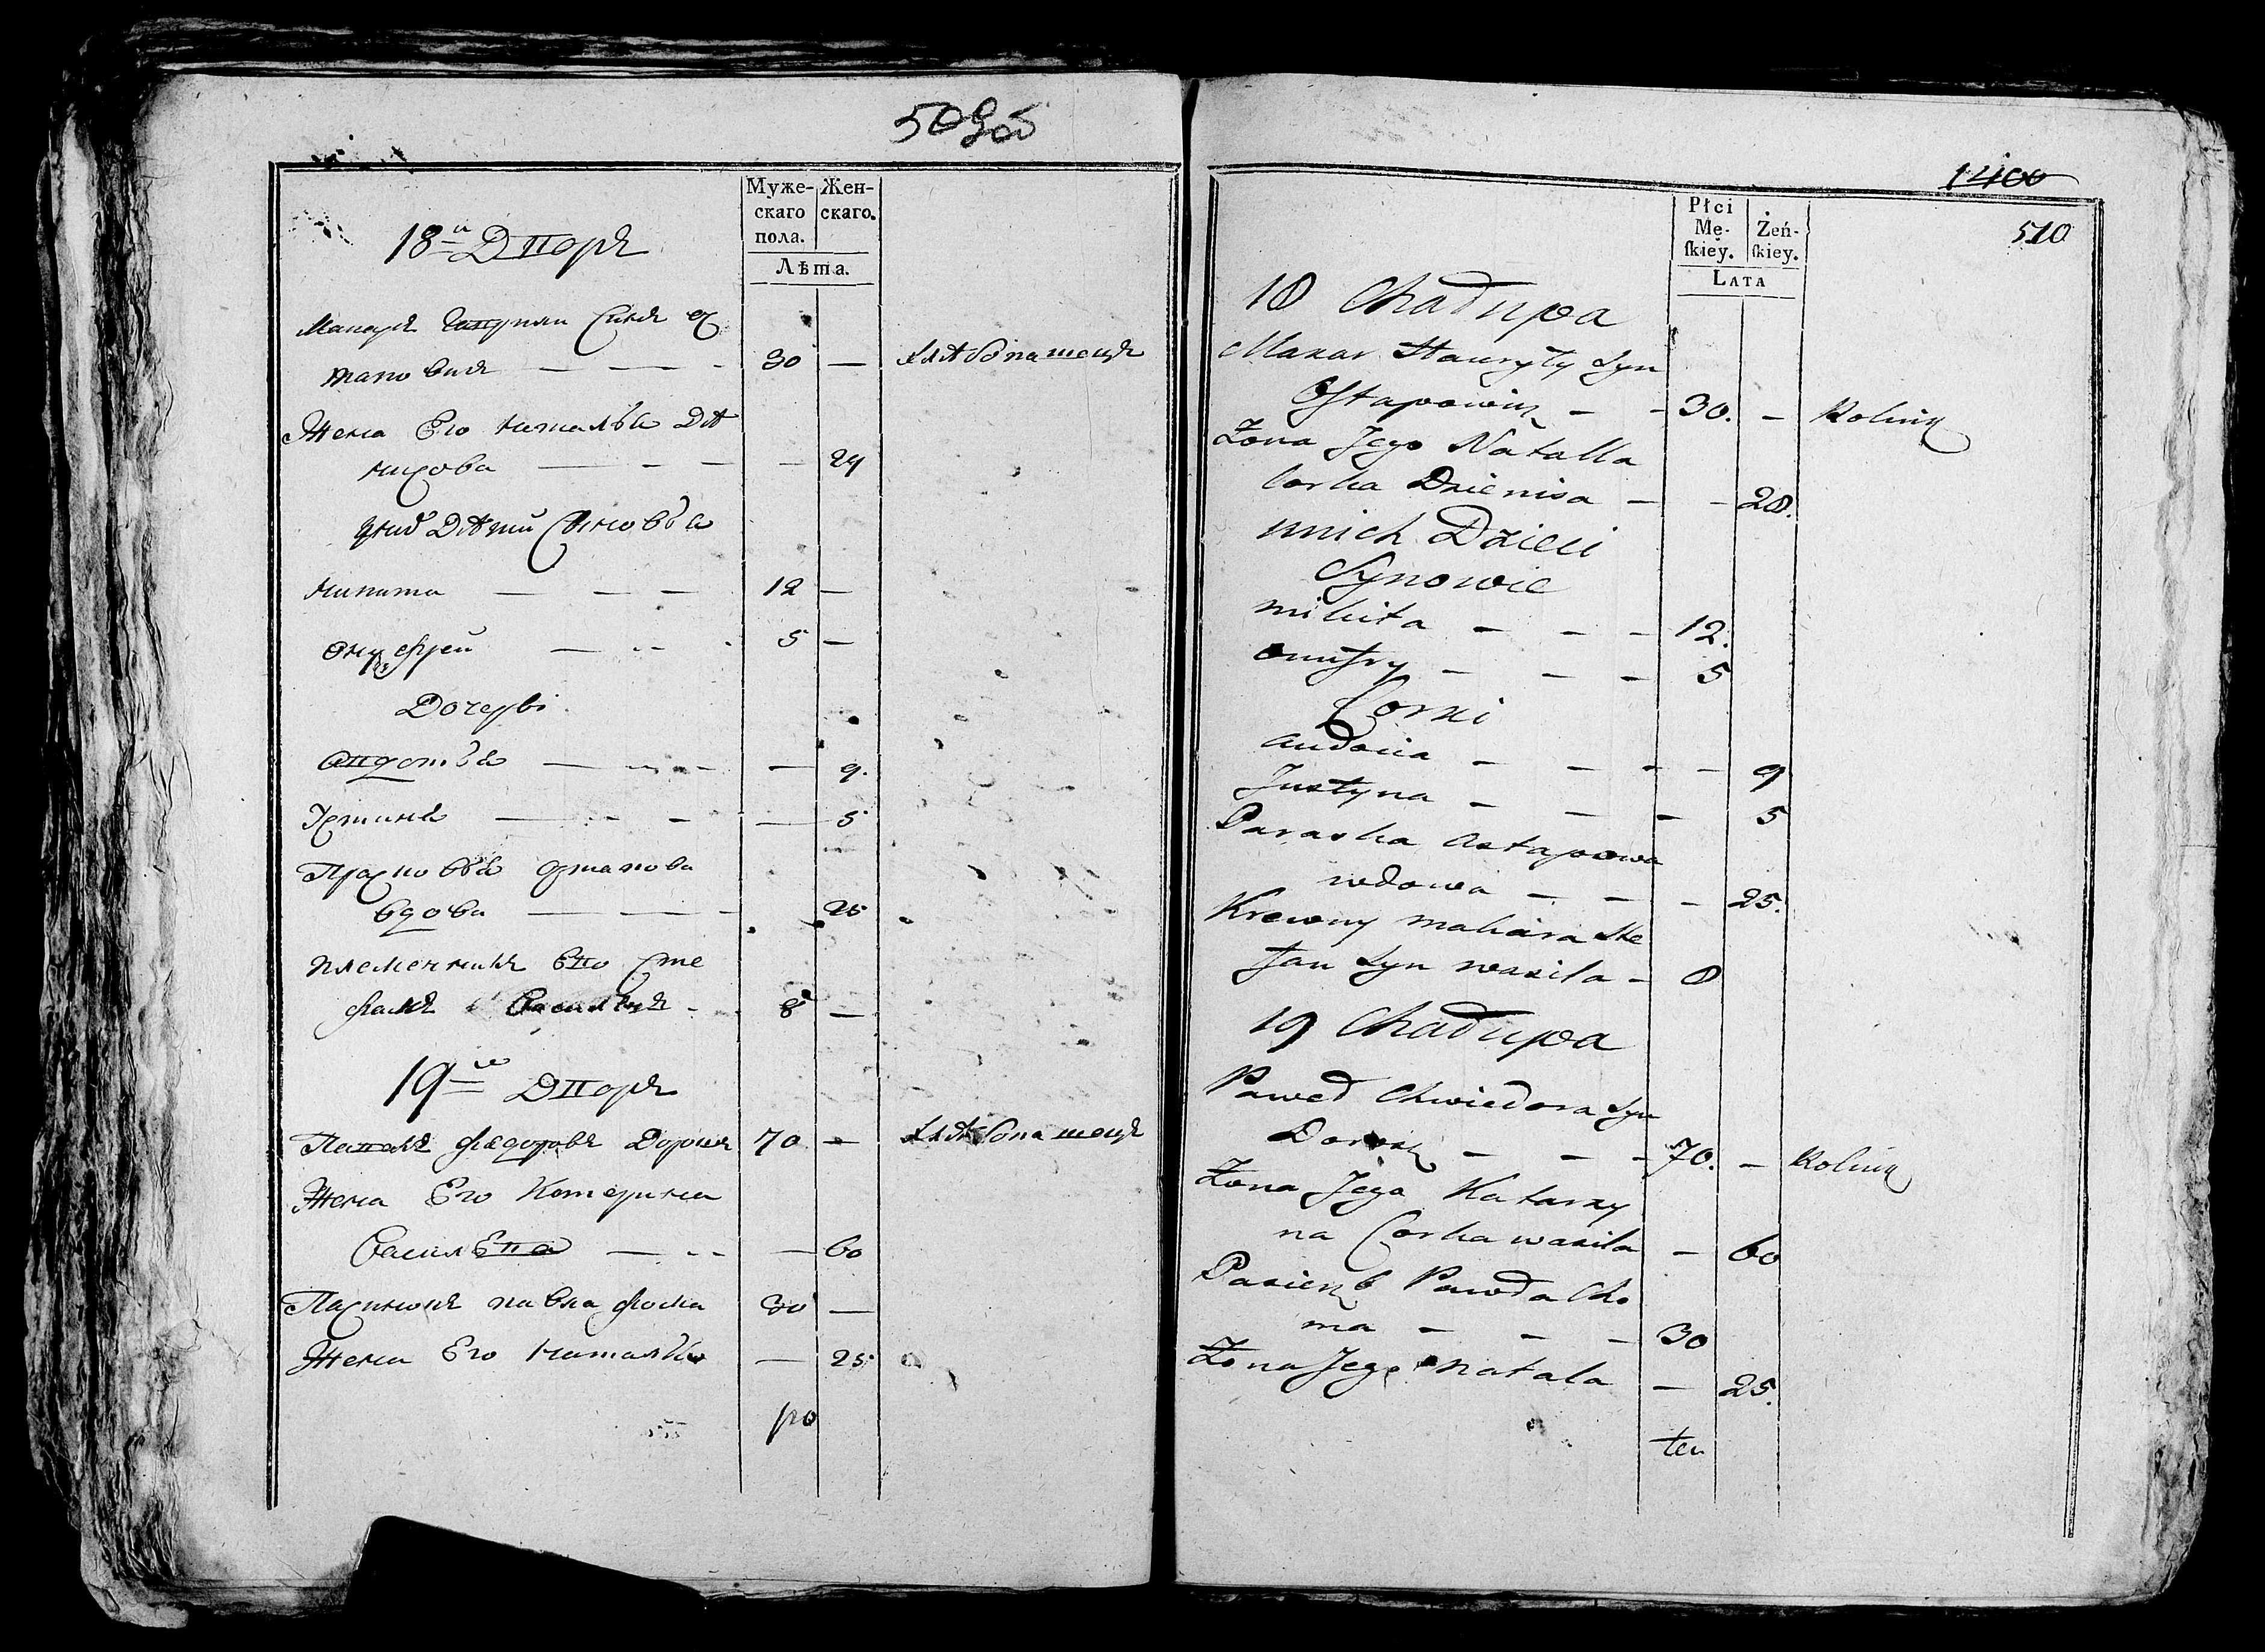 509об
Муже-
скаго
пола.
Жен-
скаго.
Лѣта.
18й Дворъ
Макаръ Гаврили Сынъ ос
таповичъ — — — - 30 — хлѣбопашецъ
Жена Его наталья Де
нисова — - - — 29
уних Дѣти Сыновья
никита — — — 12 —
онуфрей — -- - 5 —
Дочери
овдотья — — - — 9.
Устинья — - - — 5
Прасковья остапова
вдова — — - 25
племенникъ Его Сте
фанъ Васильевъ - 8 —
19й Дворъ
Павелъ федоровъ Дорош 70 — хлѣбопашецъ
Жена Его Катерина
Василева — -- — 60
Пасынокъ павла фома 30 —
Жена Его наталья — 25
1400
510
Płci
Mę-
ſkiey.
Żeń-
ſkiey.
LATA
18 Chałupa
Makar Hauryły Syn
Ostapowicz — - 30. — Rolnik
Żona Jego Natalla
Corka Dzienisa — - 28.
unich Dzieci
Synowie
mikita - — - 12.
onufry - — - 5
Corki
audocia - — - - 9
Justyna - — - 5
Paraska Astapowa
wdowa — — - 25.
Krewny makara Ste
fan Syn wasila - 8
19 Chałupa
Paweł Chwiedora Syn
- — - 70. — Rolnik
Żona Jego Katarzy
na Corka wasila — 60
Pasierzb Pawła Cho
ma - - - 30
Żona Jego natala — 25.
ten